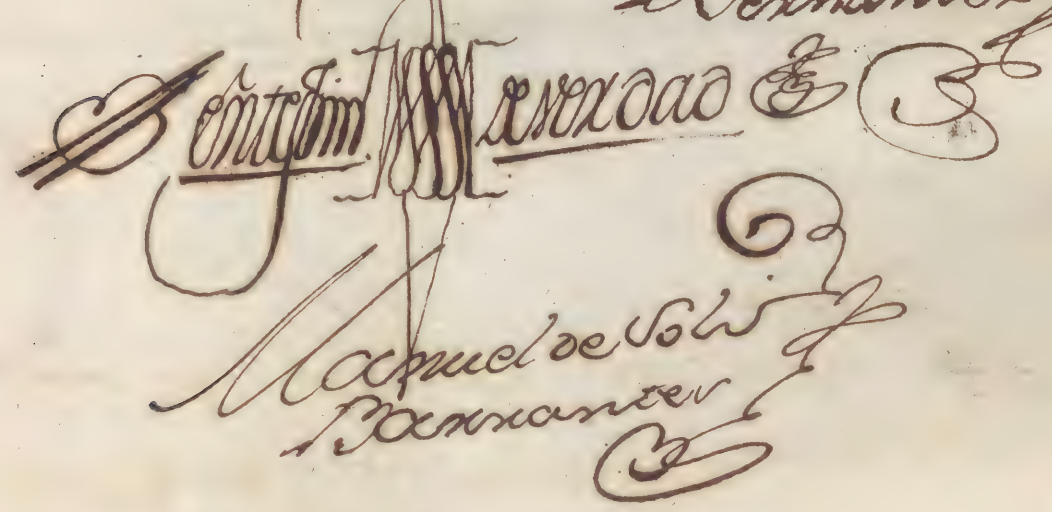 En testim.o de verdad
Manuel de Solis
Barrantes